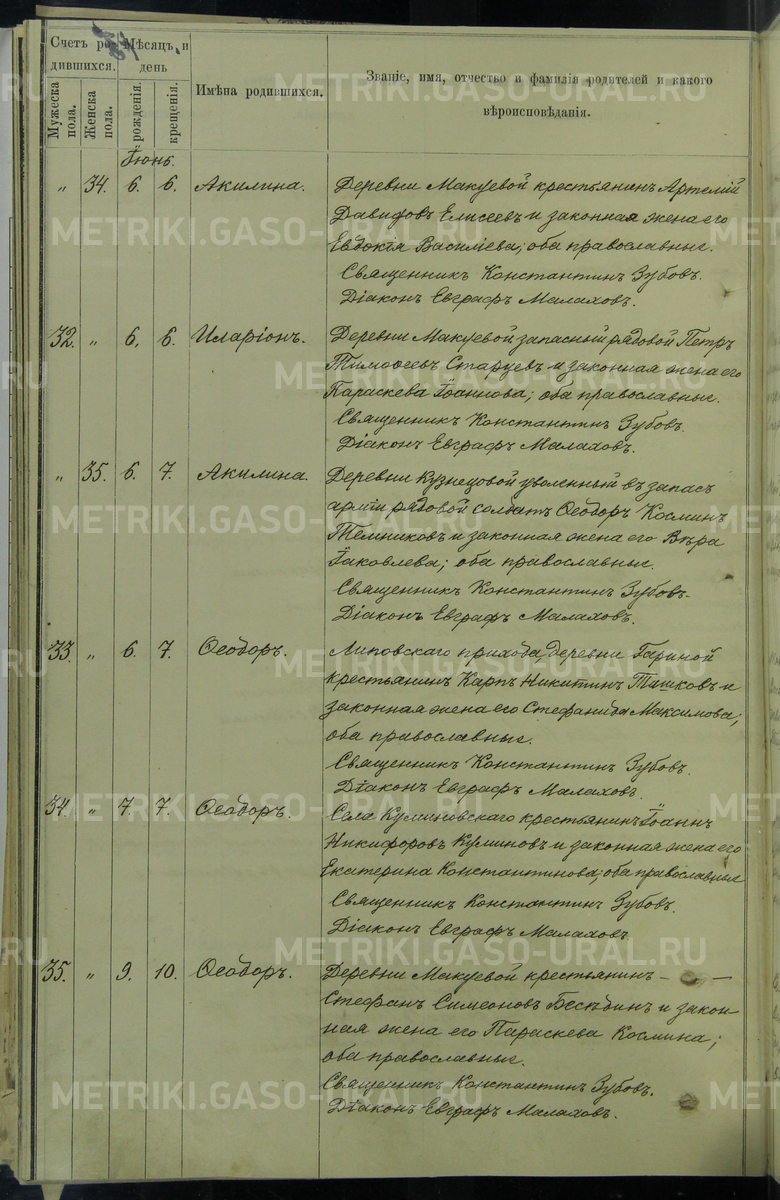 Счетъ ро-
дившихся.
Мѣсяцъ и
день
Имѣна родившихся.
Званіе, имя, отчество и фамилія родителей и какого
вѣроисповѣданія.
Мужеска
пола.
Женска
пола.
рожденія.
крещенія.
Іюнь.
„ 34. 6. 6. Акилина. Деревни Макуевой крестьянинъ Артемій
Давидовъ Елисеевъ и законная жена его
Евдокія Василіева; оба православные.
Священникъ Константинъ Зубовъ.
Діаконъ Евграфъ Малаховъ.
32. „ 6. 6. Иларіонъ. Деревни Макуевой запасный рядовой Петръ
Тимофеевъ Старцевъ и законная жена его
Параскева Іоаннова; оба православные.
Священникъ Константинъ Зубовъ.
Діаконъ Евграфъ Малаховъ.
„ 35. 6. 7. Акилина. Деревни Кузнецовой уволенный въ запасъ
арміи рядовой солдатъ Ѳеодоръ Косминъ
Темниковъ и законная жена его Вѣра
Іаковлева; оба православные.
Священникъ Константинъ Зубовъ.
Діаконъ Евграфъ Малаховъ.
33. „ 6. 7. Ѳеодоръ. Липовскаго прихода, деревни Гариной
крестьянинъ Карпъ Никитинъ Ташковъ и
законная жена его Стефанида Максимова;
оба православные.
Священникъ Константинъ Зубовъ.
Діаконъ Евграфъ Малаховъ.
34. „ 7. 7. Ѳеодоръ. Села Куминовскаго крестьянинъ Іоаннъ
Никифоровъ Куминовъ и законная жена его
Екатерина Константинова; оба православные
Священникъ Константинъ Зубовъ.
Діаконъ Евграфъ Малаховъ
35. „ 9. 10. Ѳеодоръ. Деревни Макуевой крестьянинъ —
Стефанъ Симеоновъ Бесѣдинъ и закон
ная жена его Параскева Космина;
оба православные.
Священникъ Константинъ Зубовъ.
Діаконъ Евграфъ Малаховъ.
METRIKI.GASO-URAL.RU